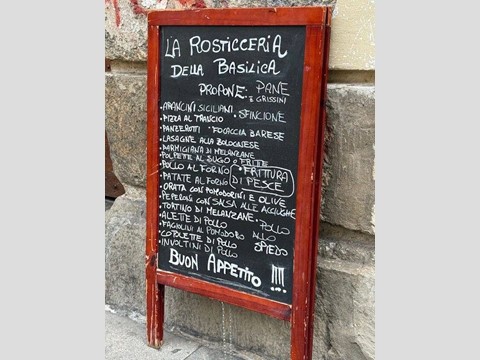 LA ROSTICCERIA
DELLA BASILICA
PROPONE: PANE
E GRISSINI
• ARANCINI SICILIANI • SFINCIONE
• PIZZA AL TRANCIO
• PANZEROTTI • FOCACCIA BARESE
• LASAGNE ALLA BOLOGNESE
• PARMIGIANA DI MELANZANE
• POLPETTE AL SUGO O FRITTE
• POLLO AL FORNO • FRITTURA
• PATATE AL FORNO DI PESCE
• ORATA CON POMODORINI E OLIVE
• PEPERONI CON SALSA ALLE ACCIUGHE
• TORTINO DI MELANZANE • POLLO
• ALETTE DI POLLO ALLO
• FAGIOLINI AL POMODORO SPIEDO
• COTOLETTE DI POLLO
• INVOLTINI DI POLLO
BUON APPETITO !!!!